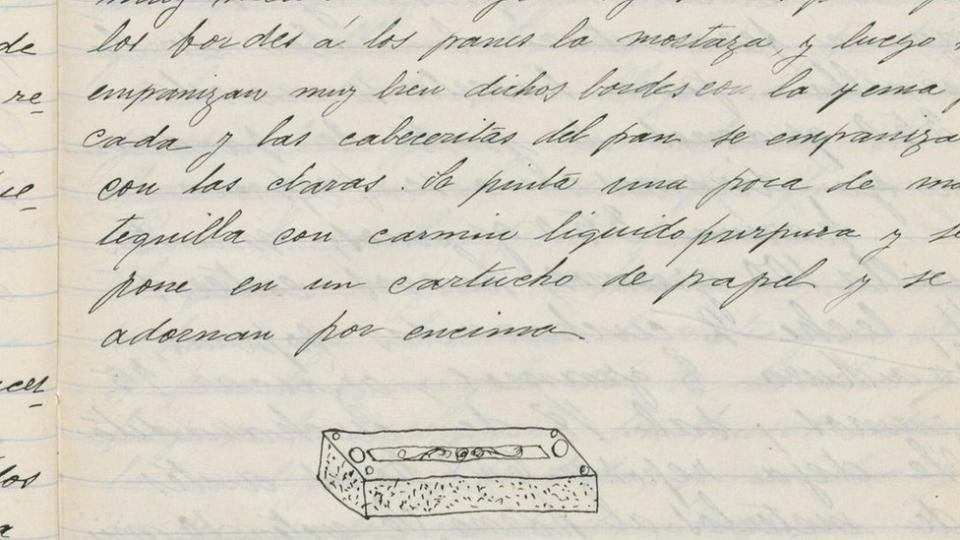 de
re
los bordes á los panes la mostaza, y luego
empanizan muy bien dichos bordes con la yema
cada y las cabeceritas del pan se empaniza
con las claras. Se pinta una poca de ma
tequilla con carmin liquido purpura y se
pone en un cartucho de papel y se
adornan por encima